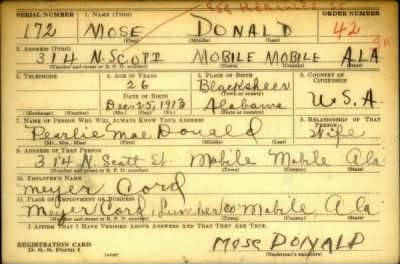 959 Hercules St
SERIAL NUMBER 1. NAME (Print) ORDER NUMBER
172 MOSE DONALD 42
(First) (Middle) (Last)
2. ADDRESS (Print)
314 N. SCOTT MOBILE MOBILE ALA
(Number and street or R. F. D. number) (Town) (County) (State)
3. TELEPHONE 4. AGE IN YEARS 5. PLACE OF BIRTH 6. COUNTRY OF CITIZENSHIP
26 Blacksheer
DATE OF BIRTH (Town or county)
Dec. 25, 1913 Alabama U.S.A
(Exchange) (Number) (Mo.) (Day) (Yr.) (State or country)
7. NAME OF PERSON WHO WILL ALWAYS KNOW YOUR ADDRESS 8. RELATIONSHIP OF THAT PERSON
Pearlie Mae Donald Wife
(Mr., Mrs., Miss) (First) (Middle) (Last)
9. ADDRESS OF THAT PERSON
314 N. Scott St. Mobile Mobile Ala
(Number and street or R. F. D. number) (Town) (County) (State)
10. EMPLOYER'S NAME
Meyer Cord
11. PLACE OF EMPLOYMENT OR BUSINESS
Meyer Cord Lumber Co Mobile, Ala
(Number and street or R. F. D. number) (Town) (County) (State)
I AFFIRM THAT I HAVE VERIFIED ABOVE ANSWERS AND THAT THEY ARE TRUE.
REGISTRATION CARD
D. S. S. Form 1 MOSE DONALD